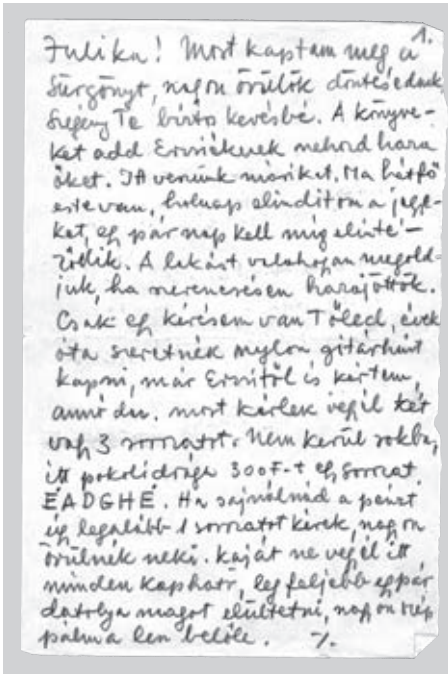 1.
Julika! Most kaptam meg a
Sürgönyt, nagyon örülök döntésednek
Szegény Te biztos kevésbé. A könyve-
ket add Ervinéknek ne hord haza
őket. Itt veszünk másikat. Ma hétfő
este van, holnap elindítom a jegye-
ket, egy pár nap kell míg elinté-
ződik. A lakást valahogyan megold-
juk, ha szerencsésen hazajöttök.
Csak egy kérésem van Tőled, évek
óta szeretnék nylon gitárhúrt
kapni, már Ervitől is kértem,
most kérlek vegyél két
vagy 3 sorozatot. Nem kerül sokba,
itt pokoli drága 300F-t egy sorozat.
EADGHE. Ha sajnálnád a pénzt
úgy legalább 1 sorozatot kérek, nagyon
örülnék neki. Kaját ne vegyél itt
minden kapható, legfeljebb egy pár
datolya magot elültetni, nagyon szép
pálma lesz belőle. %.